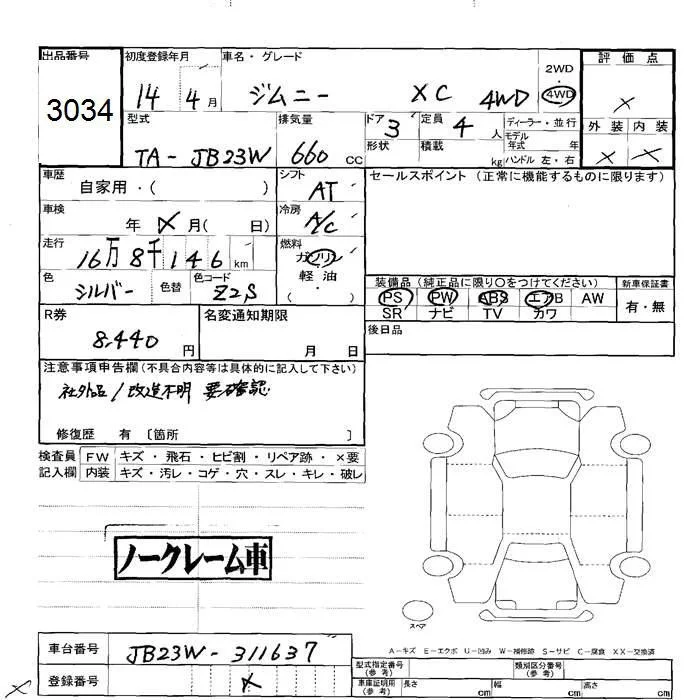 出品番号
3034
初度登録年月
14 4月
車名・グレード
ジムニー XC 4WD
2WD
4WD
評価点
×
外装 内装
× ×
型式
TA-JB23W
排気量
660 CC
ドア 3
形状
定員 4 人
積載 kg
ディーラー・並行
モデル
年式 年
ハンドル 左・右
車歴
自家用・( )
シフト
AT
車検
年 × 月( 日)
冷房
A/C
走行
16万8千146km
燃料
ガソリン
軽油
( )
色
シルバー
色替
色コード
Z2S
セールスポイント(正常に機能するものに限ります)
装備品(純正品に限り○をつけてください)
PS PW ABS エアB AW
SR ナビ TV カワ
新車保証書
有・無
後日品
R券
8,440 円
名変通知期限
月 日
注意事項申告欄(不具合内容等は具体的に記入して下さい)
社外品/改造不明 要確認
修復歴 有〔箇所 〕
検査員 FW キズ・飛石・ヒビ割・リペア跡・×要
記入欄 内装 キズ・汚レ・コゲ・穴・スレ・キレ・破レ
ノークレーム車
スペア
A-キズ E-エクボ U-凹み W-補修跡 S-サビ C-腐食 XX-交換済
車台番号
JB23W-311637
登録番号
×
×
型式指定番号
(参考)
類別区分番号
(参考)
車庫証明用
(参考)
長さ cm
幅 cm
高さ cm